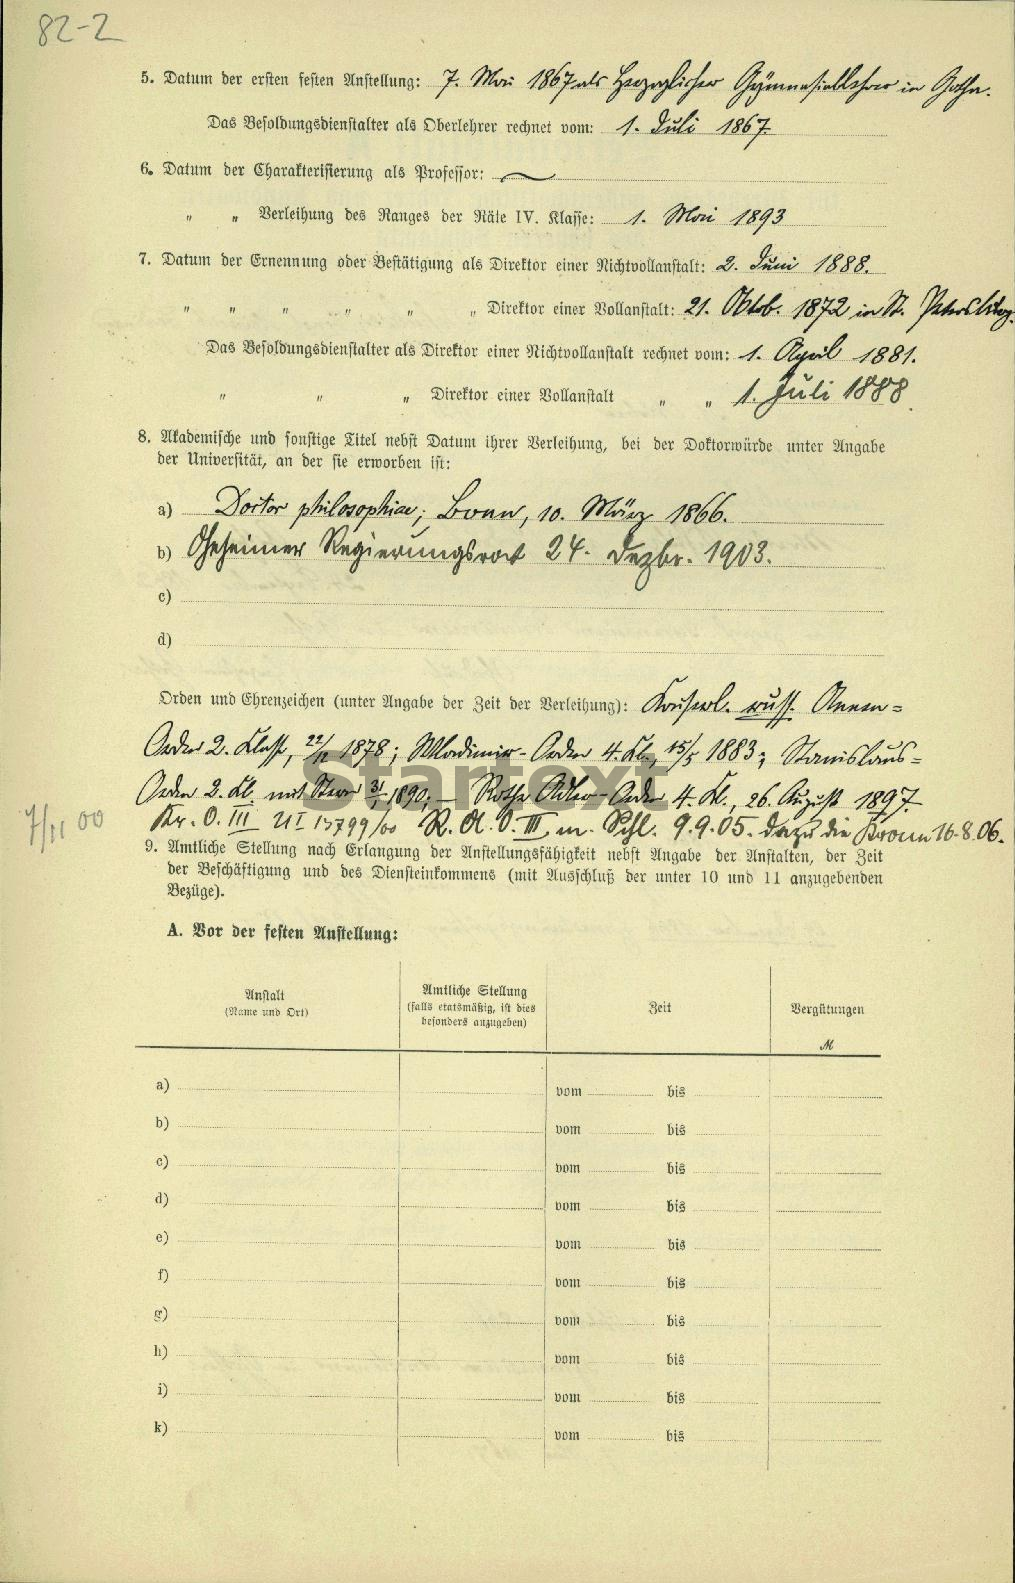 82-2
5. Datum der ersten festen Anstellung: 7. Mai 1867 als Herzoglicher Gymnasiallehrer in Gotha.
Das Besoldungsdienstalter als Oberlehrer rechnet vom: 1. Juli 1867
6. Datum der Charakterisierung als Professor: —
" " Verleihung des Ranges der Räte IV. Klasse: 1. Mai 1893
7. Datum der Ernennung oder Bestätigung als Direktor einer Nichtvollanstalt: 2. Juni 1888.
" " " " " " Direktor einer Vollanstalt: 21. Oktob. 1872 in St. Petersburg.
Das Besoldungsdienstalter als Direktor einer Nichtvollanstalt rechnet vom: 1. April 1881.
" " " Direktor einer Vollanstalt " " 1. Juli 1888
8. Akademische und sonstige Titel nebst Datum ihrer Verleihung, bei der Doktorwürde unter Angabe
der Universität, an der sie erworben ist:
a) Doctor philosophiae; Bonn, 10. März 1866.
b) Geheimer Regierungsrat 24. Dezbr. 1903.
c)
d)
Orden und Ehrenzeichen (unter Angabe der Zeit der Verleihung): Kaiserl. russ. Annen=
Orden 2. Klasse, 22/12 1878; Wladimir-Orden 4. Kl., 15/5 1883; Stanislaus=
Orden 2. Kl. mit Stern 1890; — Rother Adler-Orden 4. Kl., 26. August 1897.
7/11 00
Kr. O. III UI 13799/00 R. A. O. III m. Schl. 9.9.05. dazu die Krone 16.8.06.
9. Amtliche Stellung nach Erlangung der Anstellungsfähigkeit nebst Angabe der Anstalten, der Zeit
der Beschäftigung und des Diensteinkommens (mit Ausschluß der unter 10 und 11 anzugebenden
Bezüge).
A. Vor der festen Anstellung:
Anstalt
(Name und Ort)
Amtliche Stellung
(falls etatsmäßig, ist dies
besonders anzugeben)
Zeit
Vergütungen
M
a) vom bis
b) vom bis
c) vom bis
d) vom bis
e) vom bis
f) vom bis
g) vom bis
h) vom bis
i) vom bis
k) vom bis
Startext